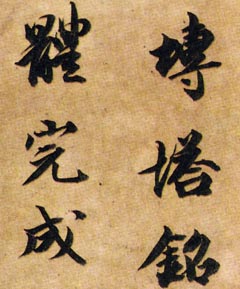 塼塔銘
體完成